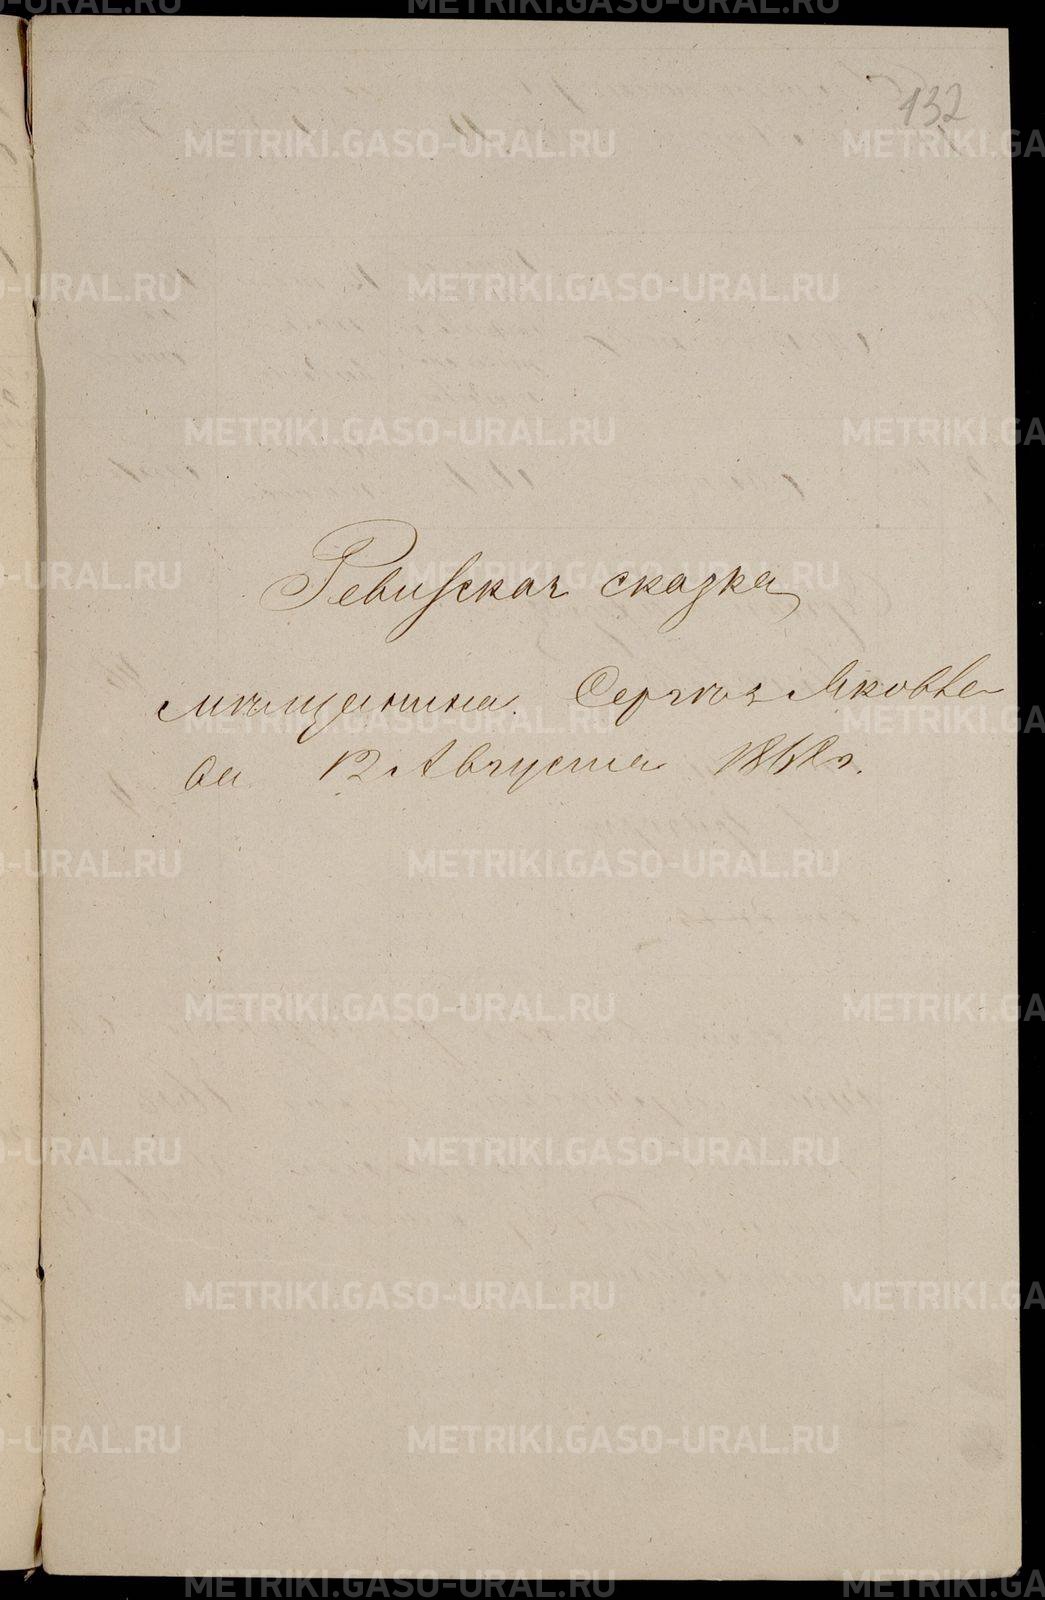 132
Ревизская сказка
мѣщанина Сергѣя Яковле-
ва 12 Августа 1868 г.
METRIKI.GASO-URAL.RU